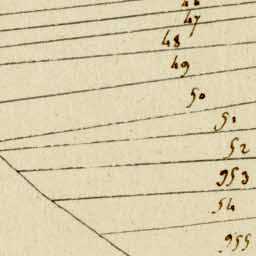 47
48
49
50
51
52
953
54
955